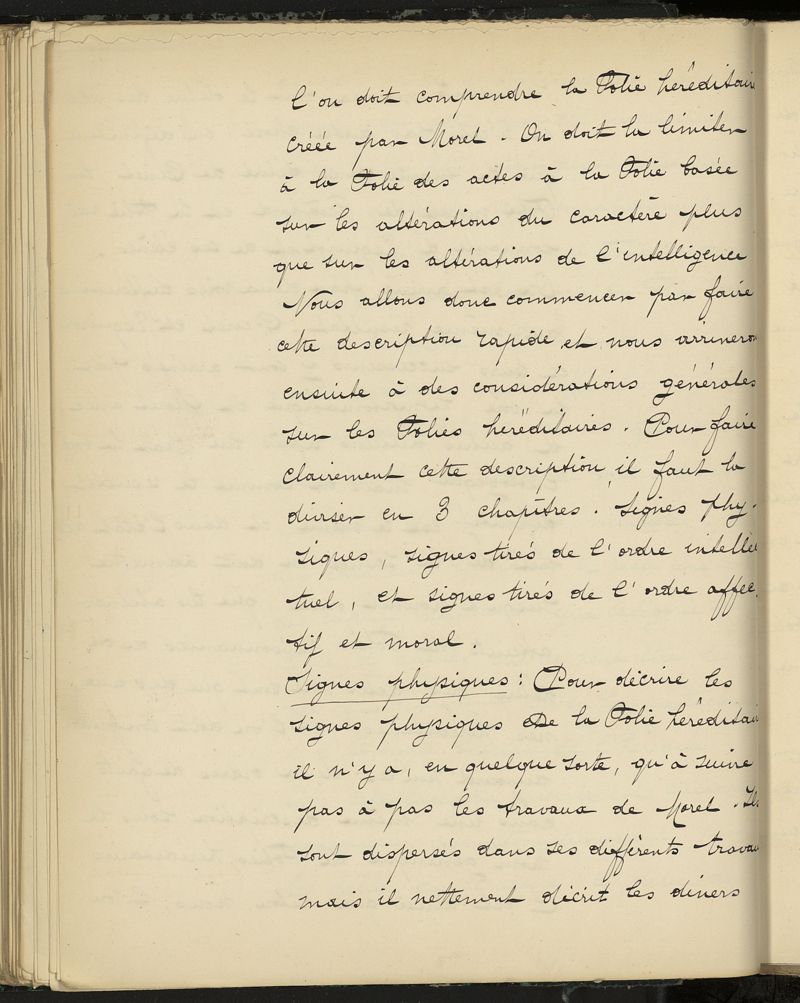 l'on doit comprendre la Folie héréditaire
créée par Morel. On doit la limiter
à la Folie des actes à la Folie basée
sur les altérations du caractère plus
que sur les altérations de l'intelligence
Nous allons donc commencer par faire
cette description rapide et nous arriverons
ensuite à des considérations générales
sur les Folies héréditaires. Pour faire
clairement cette description, il faut la
diviser en 3 chapîtres. Signes phy-
siques, signes tirés de l'ordre intellec
tuel, et signes tirés de l'ordre affec-
tif et moral.
Signes physiques : Pour décrire les
signes physiques de la Folie héréditaire
il n'y a, en quelque sorte, qu'à suivre
pas à pas les travaux de Morel. Ils
sont dispersés dans ses différents travaux
mais il nettement décrit les divers